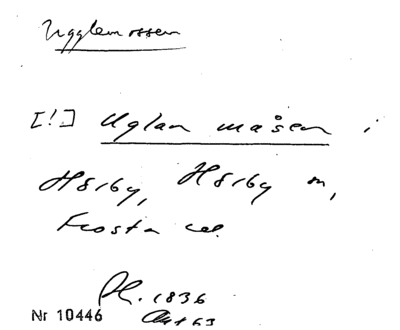 Ugglemossen
[!] Uglan måsen i
Hörby, Hörby sn,
Frosta
Pl. 1836
Nr 10446 Akt 63